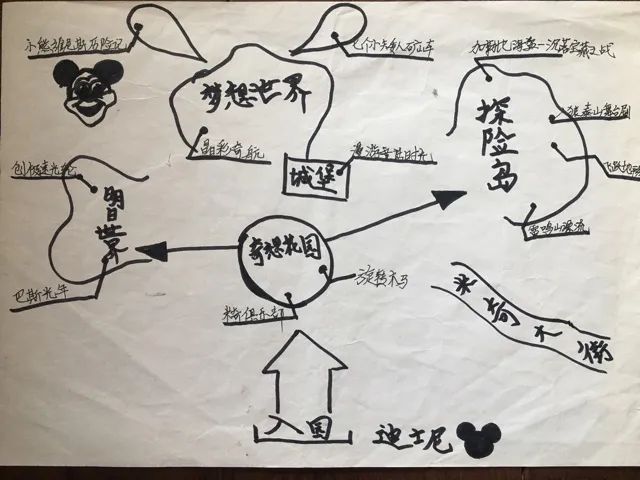 小熊维尼历险记
七个小矮人矿山车
加勒比海盗—沉落宝藏之战
梦想世界
探险岛
泰山舞台剧
晶彩奇航
漫游童话时光
飞跃地
创极速光轮
城堡
明日世界
雷鸣山漂流
奇想花园
旋转木马
巴斯光年
米奇俱乐部
米奇大街
入园
迪士尼